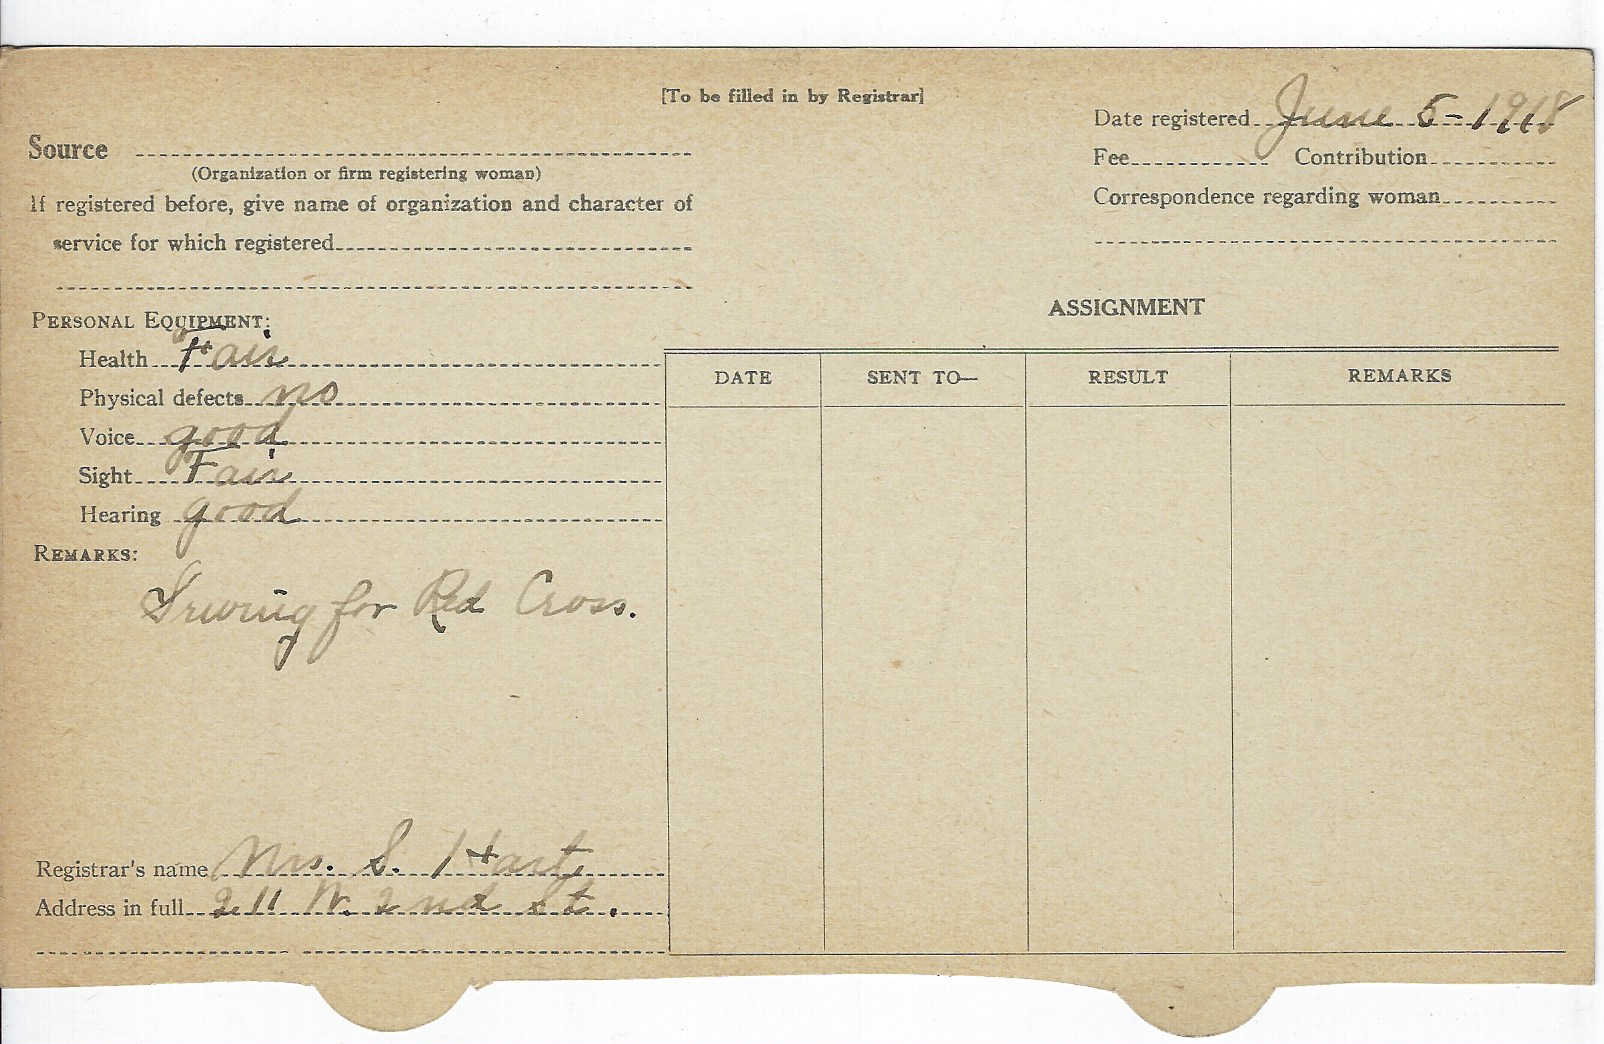 [To be filled in by Registrar]
Date registered June 5-1918
Source
Fee Contribution
(Organization or firm registering woman)
Correspondence regarding woman
If registered before, give name of organization and character of
service for which registered
ASSIGNMENT
PERSONAL EQUIPMENT:
Health Fair
Physical defects no
Voice good
Sight Fair
Hearing good
REMARKS:
Sewing for Red Cross.
DATE SENT TO— RESULT REMARKS
Registrar's name Mrs. S. Hart
Address in full 211 W. 2nd St.